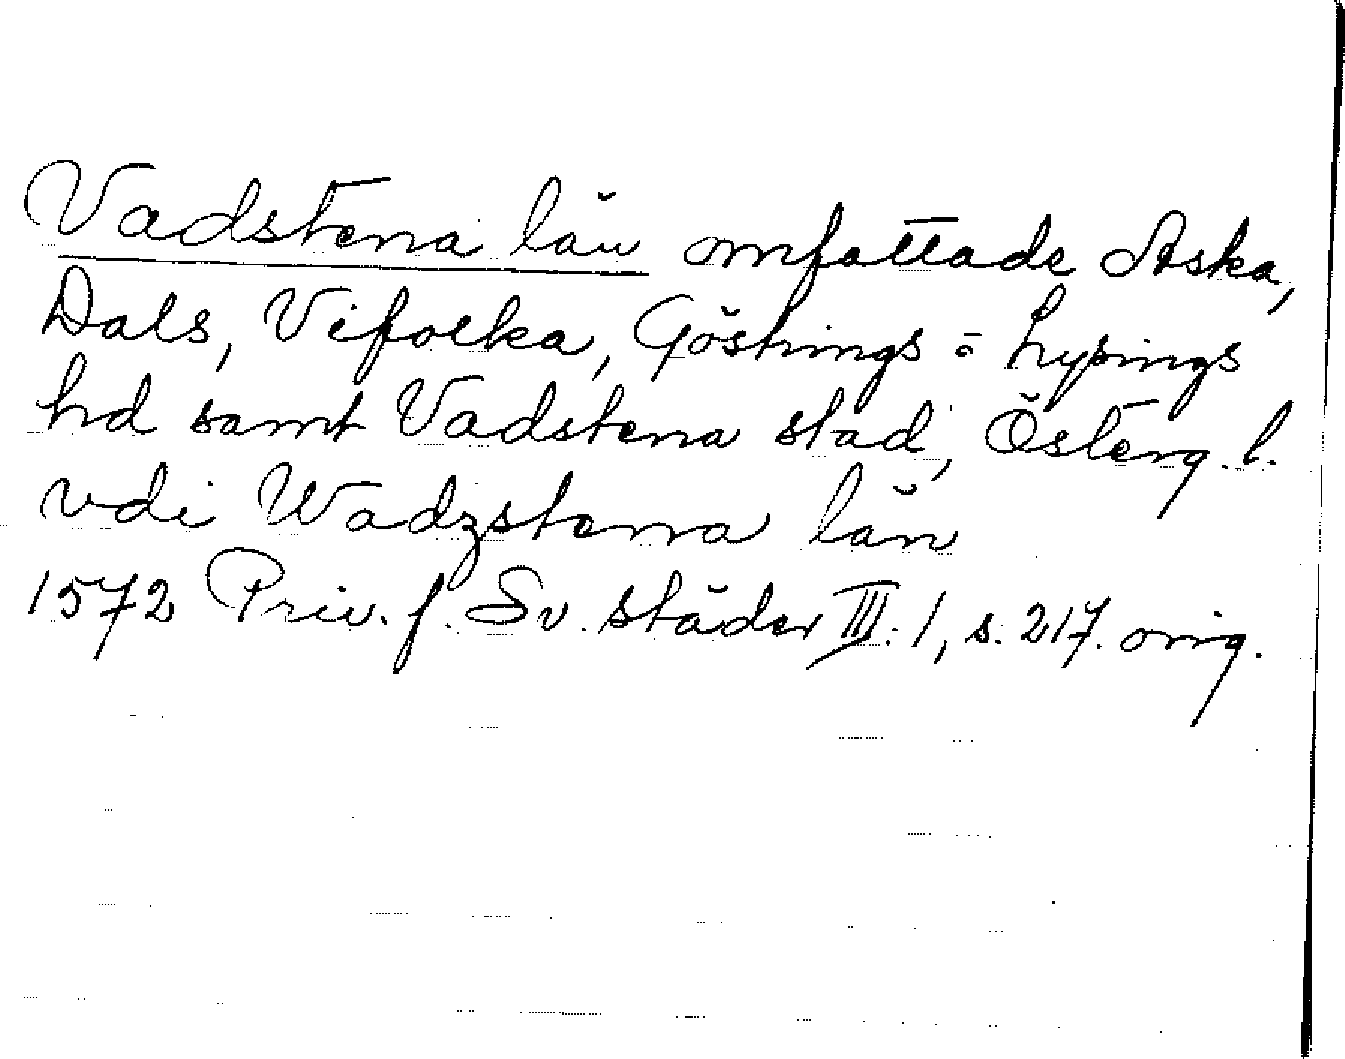 Vadstena län omfattade Aska,
Dals, Vifolka, Göstrings o Lysings
hd samt Vadstena stad, Österg. l.
vdi Wadzstena län
1572 Priv. f. Sv. städer III: 1, s. 217. orig.